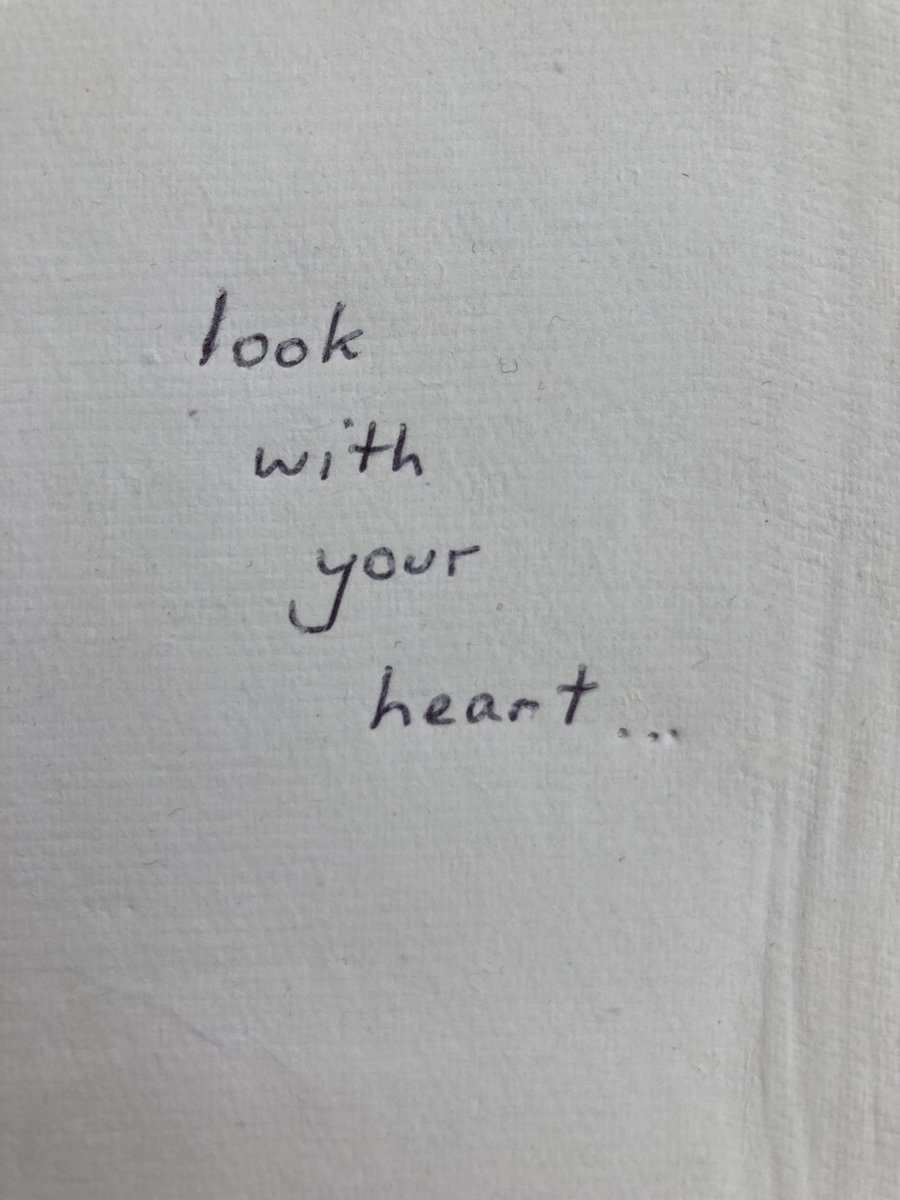 look
with
your
heart...